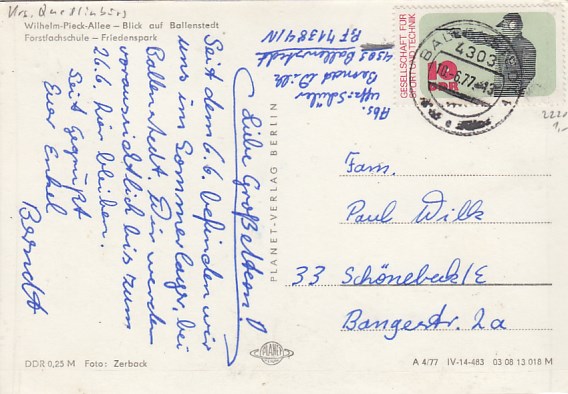 Krs. Quedlinburg
Wilhelm-Pieck-Allee – Blick auf Ballenstedt
Forstfachschule – Friedenspark
Abs.
Uffz.-Schüler
Berndt Wilk
4303 Ballenstedt
PF 14389/N
GESELLSCHAFT FÜR
SPORT UND TECHNIK
DDR
4303
10.-6.77.-13
2220
1,-
Liebe Großeltern!
Seit dem 6.6. befinden wir
uns im Sommerlager, bei
Ballenstedt. Wir werden
voraussichtlich bis zum
26.6. hier bleiben.
Seit gegrüßt
Euer Enkel
Berndt
PLANET-VERLAG BERLIN
Fam.
Paul Wilk
33 Schönebeck/E
Bangerstr. 2a
DDR 0,25 M Foto: Zerback
PLANET
A 4/77 IV-14-483 03 08 13 018 M